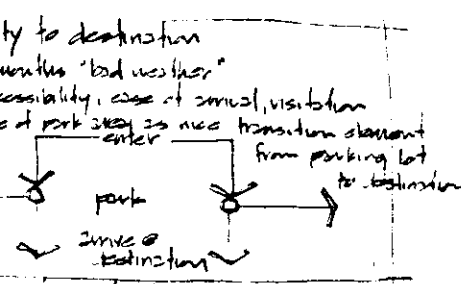 ty to destination
months "bad weather"
cessibility, ease of arrival, visitation
e of park area as nice transition element
enter
from parking lot
to destination
park
arrive @
destination